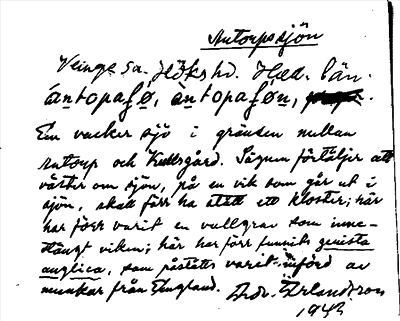 Antorpssjön
Veinge sn. Höks hd. Hall. län.
àntopasø, àntopasøn,
En vacker sjö i gränsen mellan
Antorp och Kullsgård. Sägnen förtäljer att
väster om sjön, på en vik som går ut i
sjön, skall förr ha stått ett kloster; här
har förr varit en vallgrav som inne-
stängt viken; här har förr funnits genista
anglica, som påståtts varit införd av
munkar från England. Erlandsson
1945